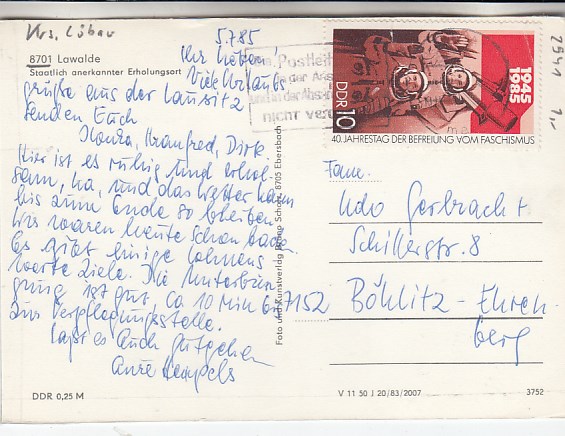 Krs. Löbau
5.7.85
8701 Lawalde
Staatlich anerkannter Erholungsort
Ihr Lieben!
Viele Urlaubs
grüße aus der Lausitz
senden Euch
Manfred, Dirk
Hier ist es ruhig und erhol-
sam, na, und das Wetter kann
bis zum Ende so bleiben
Wir waren heute schon baden
Es gibt einige lohnens
werte Ziele. Die Unterbrin
gung ist gut, ca 10 Min
zur Verpflegungsstelle.
Laßt es Euch gutgehen
Eure
DDR 0,25 M
Foto und Kunstverlag Schol, 8705 Ebersbach
Postleit
in der Ans
und in der Abs
nicht ver
DDR 10
1945
1985
40. JAHRESTAG DER BEFREIUNG VOM FASCHISMUS
2941
1,-
Fam.
Udo Gerbracht
Schillerstr. 8
7152
Böhlitz-Ehren
berg
V 11 50 J 20/83/2007
3752